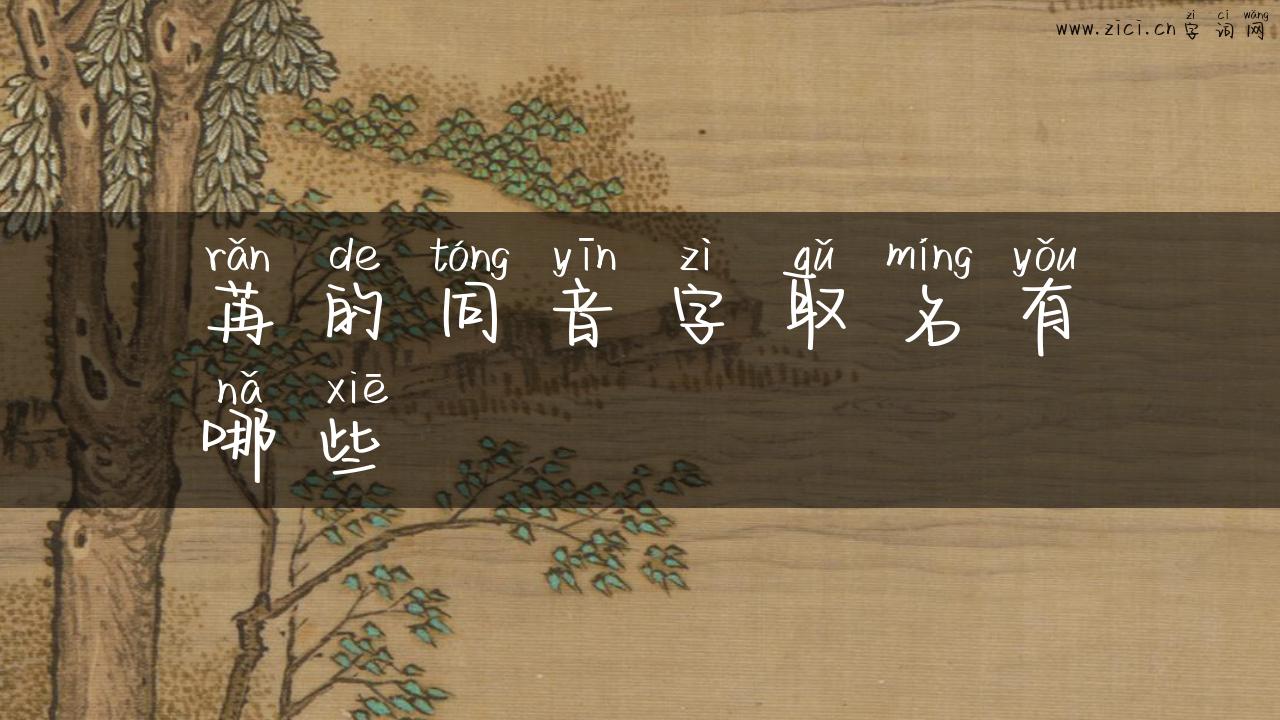 zì cí wǎng
www.zici.cn 字词网
rǎn de tóng yīn zì qǔ míng yǒu
苒的同音字取名有
nǎ xiē
哪些